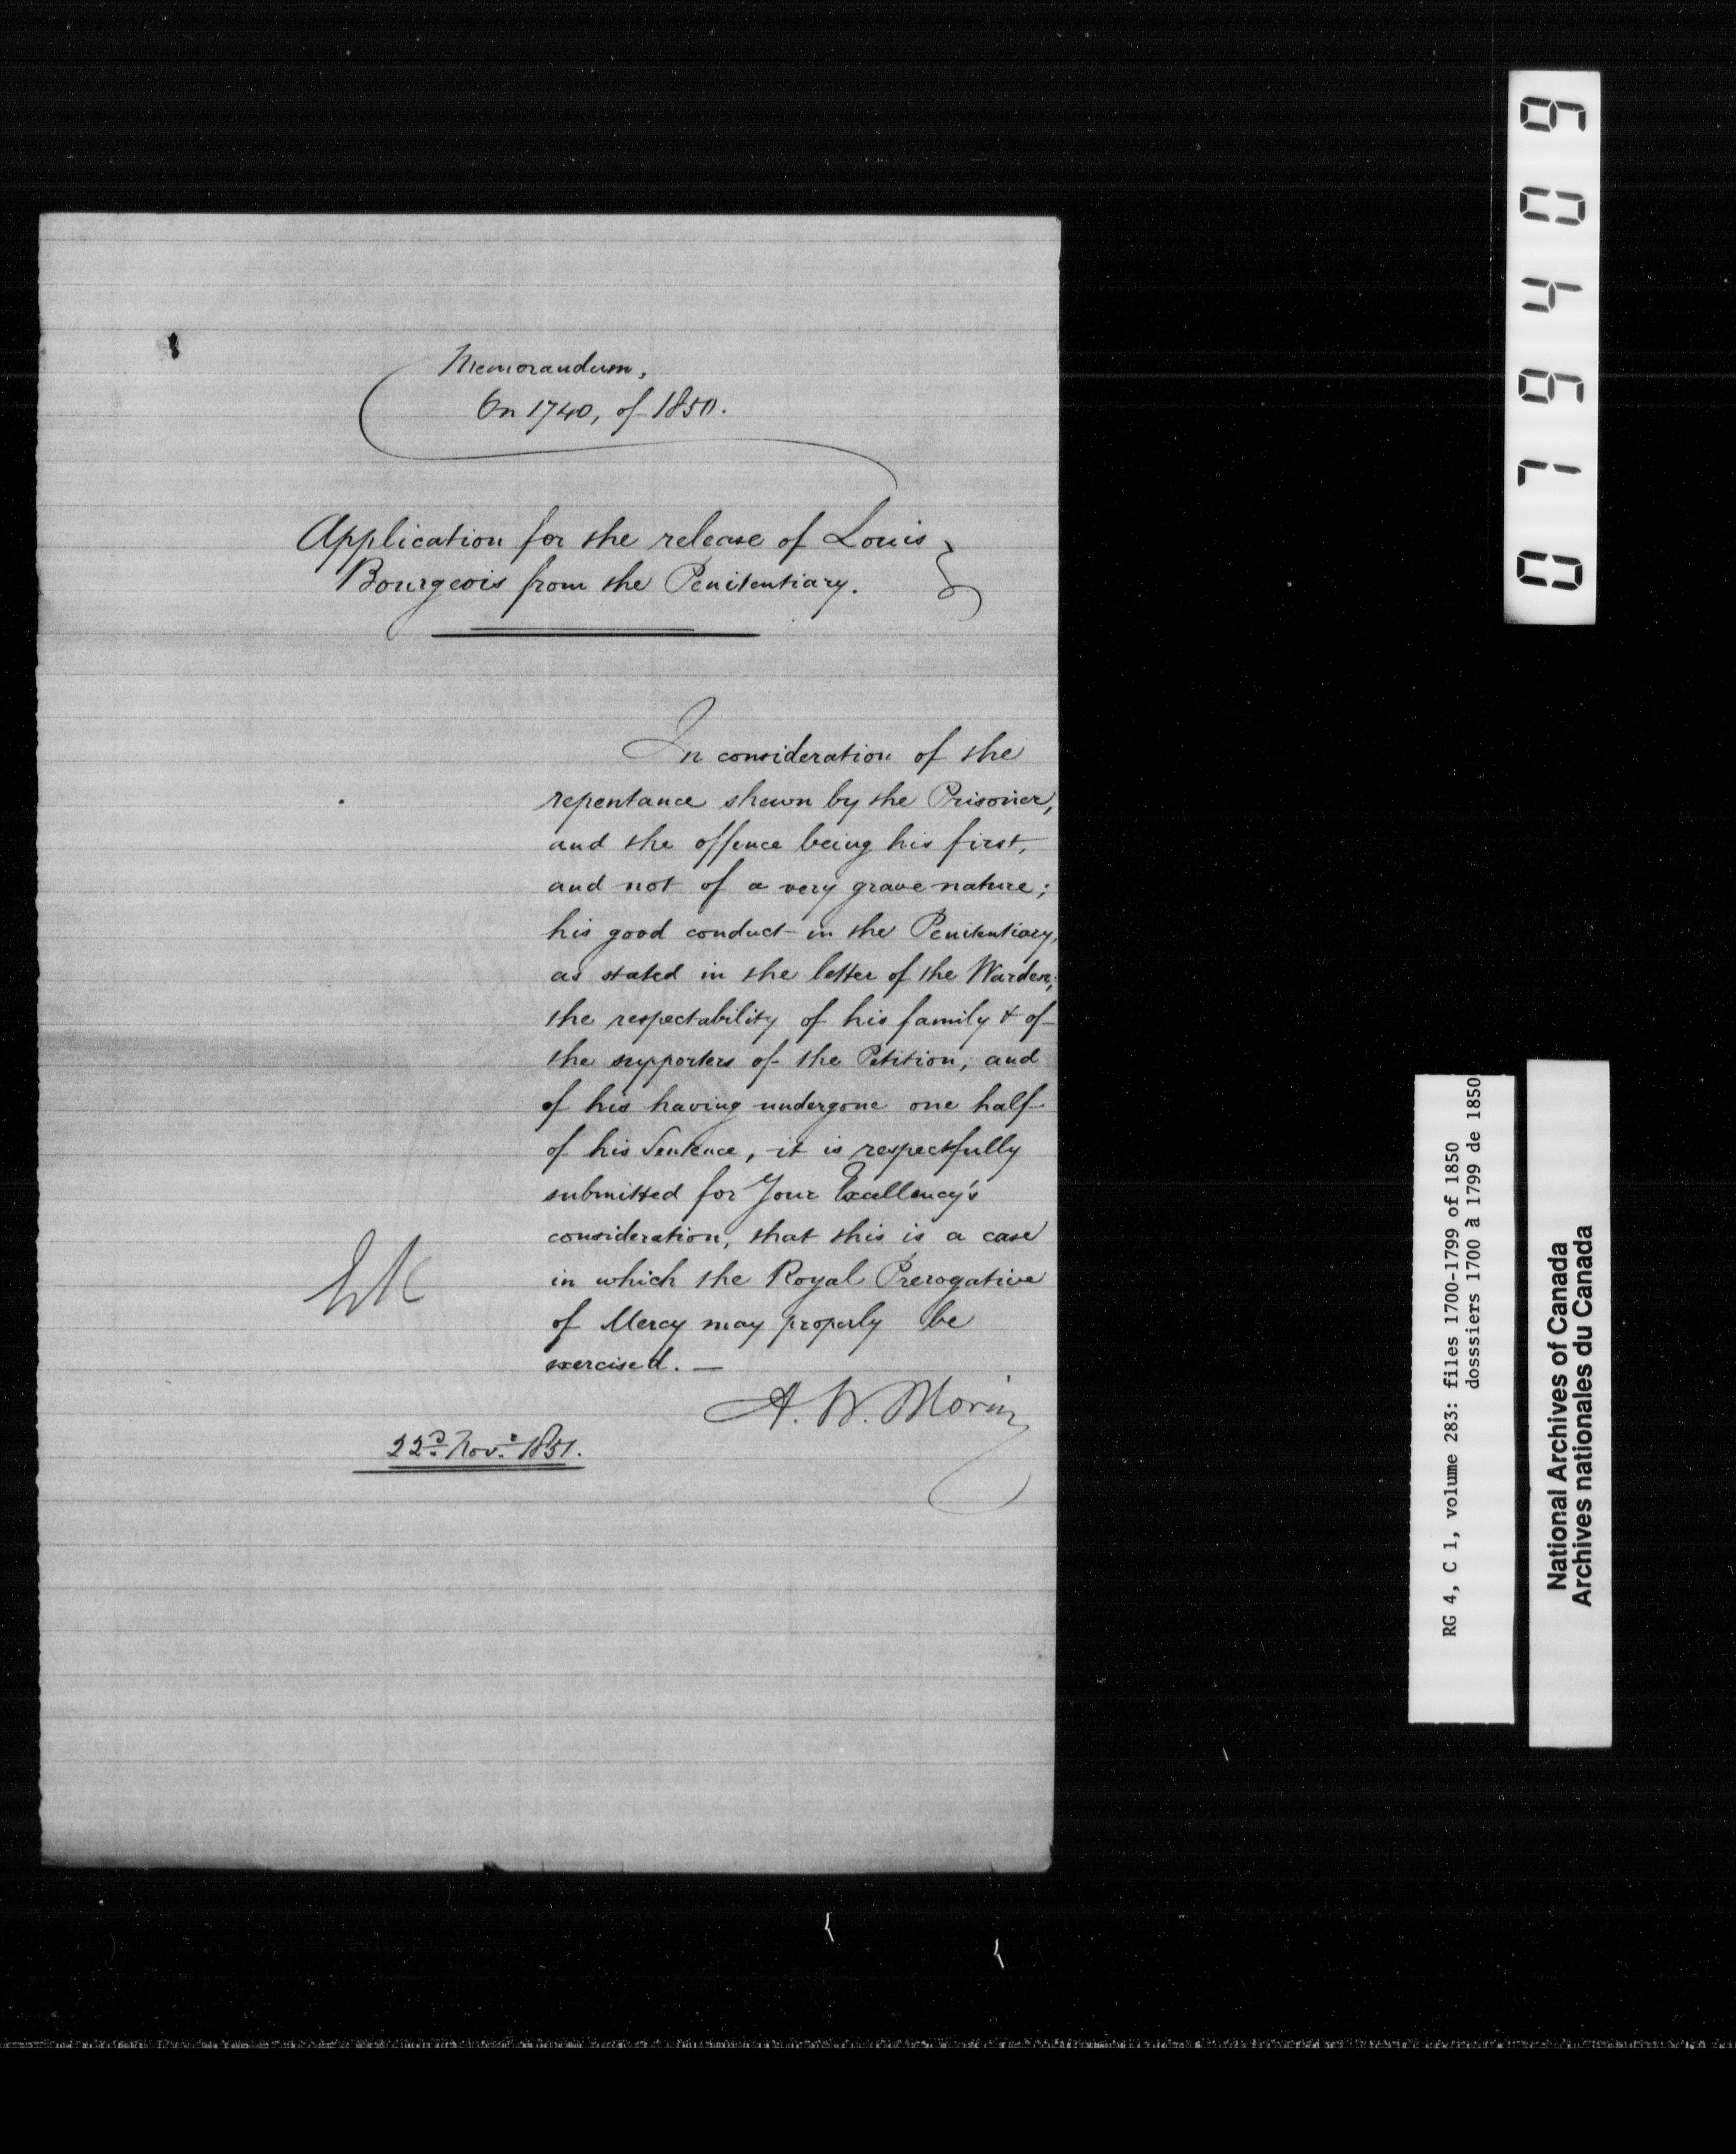 Memorandum,
On 1740, of 1850.
Application for the release of Louis
Bourgeois from the Penitentiary.
In consideration of the
repentance shewn by the Prisoner,
and the offence being his first,
and not of a very grave nature;
his good conduct in the Penitentiary,
as stated in the letter of the Warden;
the respectability of his family & of
the supporters of the Petition; and
of his having undergone one half
of his Sentence, it is respectfully
submitted for Your Excellency's
consideration, that this is a case
in which the Royal Prerogative
of Mercy may properly be
exercised. —
A. N. Morin
22d. Novr. 1851.
079409
RG 4, C 1, volume 283: files 1700-1799 of 1850
dosssiers 1700 à 1799 de 1850
National Archives of Canada
Archives nationales du Canada